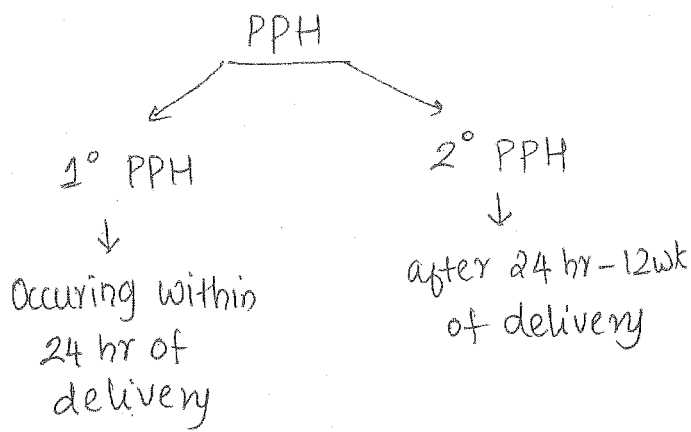 PPH
1° PPH
2° PPH
Occuring within
24 hr of
delivery
after 24 hr - 12wk
of delivery